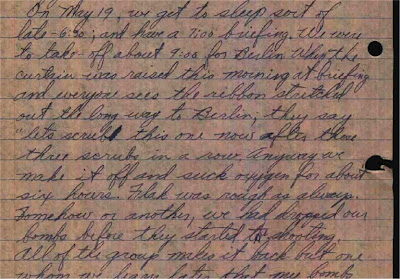 On May 19, we get to sleep sort of
late - 6:30; and have a 7:00 briefing. We were
to take-off about 9:00 for Berlin. When the
curtain was raised this morning at briefing
and everyone sees the ribbon stretched
out the long way to Berlin; they say
"lets scrub this one now after those
three scrubs in a row. Anyway we
make it off and suck oxygen for about
six hours. Flak was rough as always.
Somehow or another, we had dropped our
bombs before they started shooting.
All of the group makes it back but one
whom we learn later that